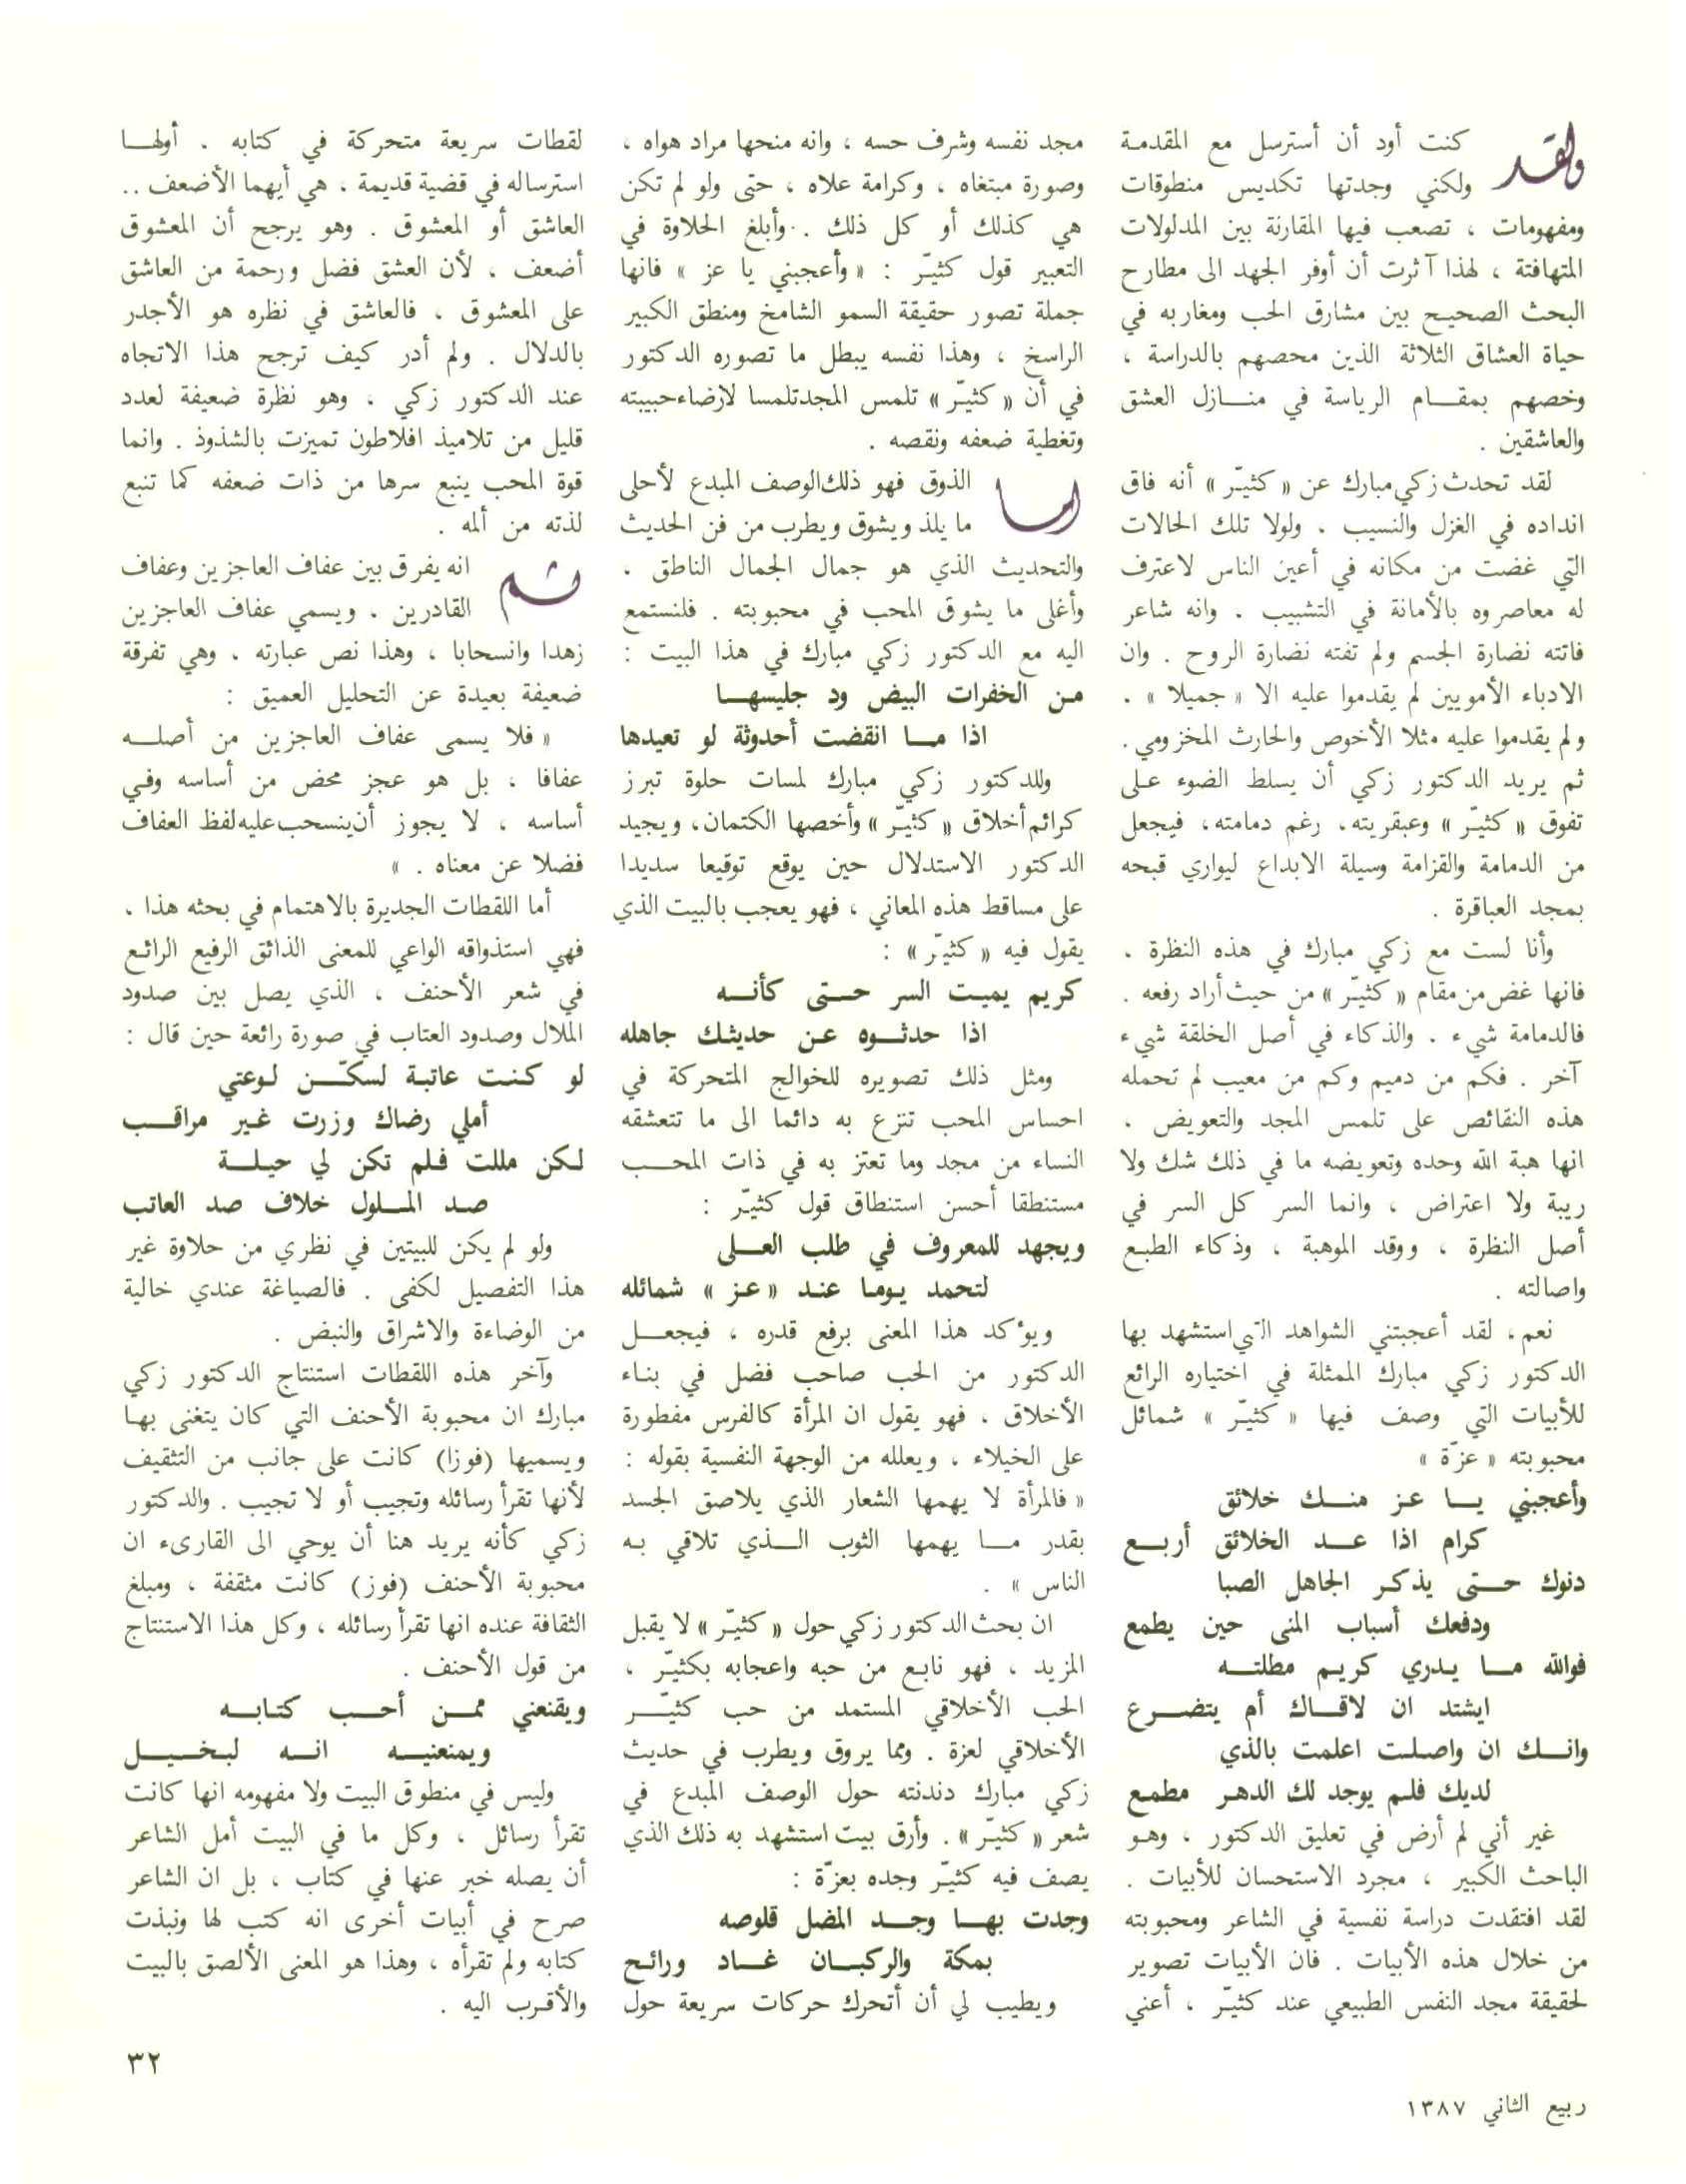 ولقد كنت أود أن أسترسل مع المقدمة
ولكني وجدتها تكديس منطوقات
ومفهومات ، تصعب فيها المقارنة بين المدلولات
المتهافتة ، لهذا آثرت أن أوفر الجهد الى مطارح
البحث الصحيح بين مشارق الحب ومغاربه في
حياة العشاق الثلاثة الذين محصهم بالدراسة ،
وخصهم بمقام الرياسة في منازل العشق
والعاشقين .
لقد تحدث زكي مبارك عن « كثيّر » أنه فاق
انداده في الغزل والنسيب . ولولا تلك الحالات
التي غضت من مكانه في أعين الناس لاعترف
له معاصروه بالأمانة في التشبيب . وانه شاعر
فاتته نضارة الجسم ولم تفته نضارة الروح . وان
الادباء الأمويين لم يقدموا عليه الا « جميلا » .
ولم يقدموا عليه مثلا الأخوص والحارث المخزومي.
ثم يريد الدكتور زكي أن يسلط الضوء على
تفوق « كثيّر » وعبقريته، رغم دمامته، فيجعل
من الدمامة والقزامة وسيلة الابداع ليواري قبحه
بمجد العباقرة .
وأنا لست مع زكي مبارك في هذه النظرة .
فانها غض من مقام « كثيّر » من حيث أراد رفعه .
فالدمامة شيء . والذكاء في أصل الخلقة شيء
آخر . فكم من دميم وكم من معيب لم تحمله
هذه النقائص على تلمس المجد والتعويض .
انها هبة الله وحده وتعويضه ما في ذلك شك ولا
ريبة ولا اعتراض ، وانما السر كل السر في
أصل النظرة ، ووقد الموهبة ، وذكاء الطبع
واصالته .
نعم، لقد أعجبتني الشواهد التي استشهد بها
الدكتور زكي مبارك الممثلة في اختياره الرائع
للأبيات التي وصف فيها « كثيّر » شمائل
محبوبته « عزّة »
وأعجبني يا عز منك خلائق
كرام اذا عد الخلائق أربع
دنوك حتى يذكر الجاهل الصبا
ودفعك أسباب المنى حين يطمع
فوالله ما يدري كريم مطلته
ايشتد ان لاقاك أم يتضرع
وانك ان واصلت اعلمت بالذي
لديك فلم يوجد لك الدهر مطمع
غير أني لم أرض في تعليق الدكتور ، وهو
الباحث الكبير ، مجرد الاستحسان للأبيات .
لقد افتقدت دراسة نفسية في الشاعر ومحبوبته
من خلال هذه الأبيات . فان الأبيات تصوير
لحقيقة مجد النفس الطبيعي عند كثيّر ، أعني
مجد نفسه وشرف حسه ، وانه منحها مراد هواه ،
وصورة مبتغاه ، وكرامة علاه ، حتى ولو لم تكن
هي كذلك أو كل ذلك . وأبلغ الحلاوة في
التعبير قول كثيّر : « وأعجبني يا عز » فانها
جملة تصور حقيقة السمو الشامخ ومنطق الكبير
الراسخ ، وهذا نفسه يبطل ما تصوره الدكتور
في أن « كثيّر » تلمس المجد تلمسا لارضاء حبيبته
وتغطية ضعفه ونقصه .
اما الذوق فهو ذلك الوصف المبدع لأحلى
ما يلذ ويشوق ويطرب من فن الحديث
والتحديث الذي هو جمال الجمال الناطق .
وأغلى ما يشوق المحب في محبوبته . فلنستمع
اليه مع الدكتور زكي مبارك في هذا البيت :
من الخفرات البيض ود جليسها
اذا ما انقضت أحدوثة لو تعيدها
وللدكتور زكي مبارك لمسات حلوة تبرز
كرائم أخلاق « كثيّر » وأخصها الكتمان، ويجيد
الدكتور الاستدلال حين يوقع توقيعا سديدا
على مساقط هذه المعاني ، فهو يعجب بالبيت الذي
يقول فيه « كثيّر » :
كريم يميت السر حتى كأنه
اذا حدثوه عن حديثك جاهله
ومثل ذلك تصويره للخوالج المتحركة في
احساس المحب تنزع به دائما الى ما تتعشقه
النساء من مجد وما تعتز به في ذات المحب
مستنطقا أحسن استنطاق قول كثيّر :
ويجهد للمعروف في طلب العلى
لتحمد يوما عند « عز » شمائله
ويؤكد هذا المعنى برفع قدره ، فيجعل
الدكتور من الحب صاحب فضل في بناء
الأخلاق ، فهو يقول ان المرأة كالفرس مفطورة
على الخيلاء ، ويعلله من الوجهة النفسية بقوله :
« فالمرأة لا يهمها الشعار الذي يلاصق الجسد
بقدر ما يهمها الثوب الذي تلاقي به
الناس » .
ان بحث الدكتور زكي حول « كثيّر » لا يقبل
المزيد ، فهو نابع من حبه واعجابه بكثيّر ،
الحب الأخلاقي المستمد من حب كثيّر
الأخلاقي لعزة . ومما يروق ويطرب في حديث
زكي مبارك دندنته حول الوصف المبدع في
شعر « كثيّر » . وأرق بيت استشهد به ذلك الذي
يصف فيه كثيّر وجده بعزّة :
وجدت بها وجد المضل قلوصه
بمكة والركبان غاد ورائح
ويطيب لي أن أتحرك حركات سريعة حول
لقطات سريعة متحركة في كتابه . أولها
استرساله في قضية قديمة ، هي أيهما الأضعف ..
العاشق أو المعشوق . وهو يرجح أن المعشوق
أضعف ، لأن العشق فضل ورحمة من العاشق
على المعشوق ، فالعاشق في نظره هو الأجدر
بالدلال . ولم أدر كيف ترجح هذا الاتجاه
عند الدكتور زكي ، وهو نظرة ضعيفة لعدد
قليل من تلاميذ افلاطون تميزت بالشذوذ . وانما
قوة المحب ينبع سرها من ذات ضعفه كما تنبع
لذته من ألمه .
ثم انه يفرق بين عفاف العاجزين وعفاف
القادرين . ويسمي عفاف العاجزين
زهدا وانسحابا ، وهذا نص عبارته ، وهي تفرقة
ضعيفة بعيدة عن التحليل العميق :
« فلا يسمى عفاف العاجزين من أصله
عفافا ، بل هو عجز محض من أساسه وفي
أساسه ، لا يجوز أن ينسحب عليه لفظ العفاف
فضلا عن معناه . »
أما اللقطات الجديرة بالاهتمام في بحثه هذا ،
فهي استذواقه الواعي للمعنى الذائق الرفيع الرائع
في شعر الأحنف ، الذي يصل بين صدود
الملال وصدود العتاب في صورة رائعة حين قال :
لو كنت عاتبة لسكّن لوعتي
أملي رضاك وزرت غير مراقب
لكن مللت فلم تكن لي حيلة
صد الملول خلاف صد العاتب
ولو لم يكن للبيتين في نظري من حلاوة غير
هذا التفصيل لكفى . فالصياغة عندي خالية
من الوضاءة والاشراق والنبض .
وآخر هذه اللقطات استنتاج الدكتور زكي
مبارك ان محبوبة الأحنف التي كان يتغنى بها
ويسميها (فوزا) كانت على جانب من التثقيف
لأنها تقرأ رسائله وتجيب أو لا تجيب . والدكتور
زكي كأنه يريد هنا أن يوحي الى القارىء ان
محبوبة الأحنف (فوز) كانت مثقفة ، ومبلغ
الثقافة عنده انها تقرأ رسائله ، وكل هذا الاستنتاج
من قول الأحنف .
ويقنعني ممن أحب كتابه
ويمنعنيه انه لبخيل
وليس في منطوق البيت ولا مفهومه انها كانت
تقرأ رسائل ، وكل ما في البيت أمل الشاعر
أن يصله خبر عنها في كتاب ، بل ان الشاعر
صرح في أبيات أخرى انه كتب لها ونبذت
كتابه ولم تقرأه ، وهذا هو المعنى الألصق بالبيت
والأقرب اليه .
٣٢
ربيع الثاني ١٣٨٧